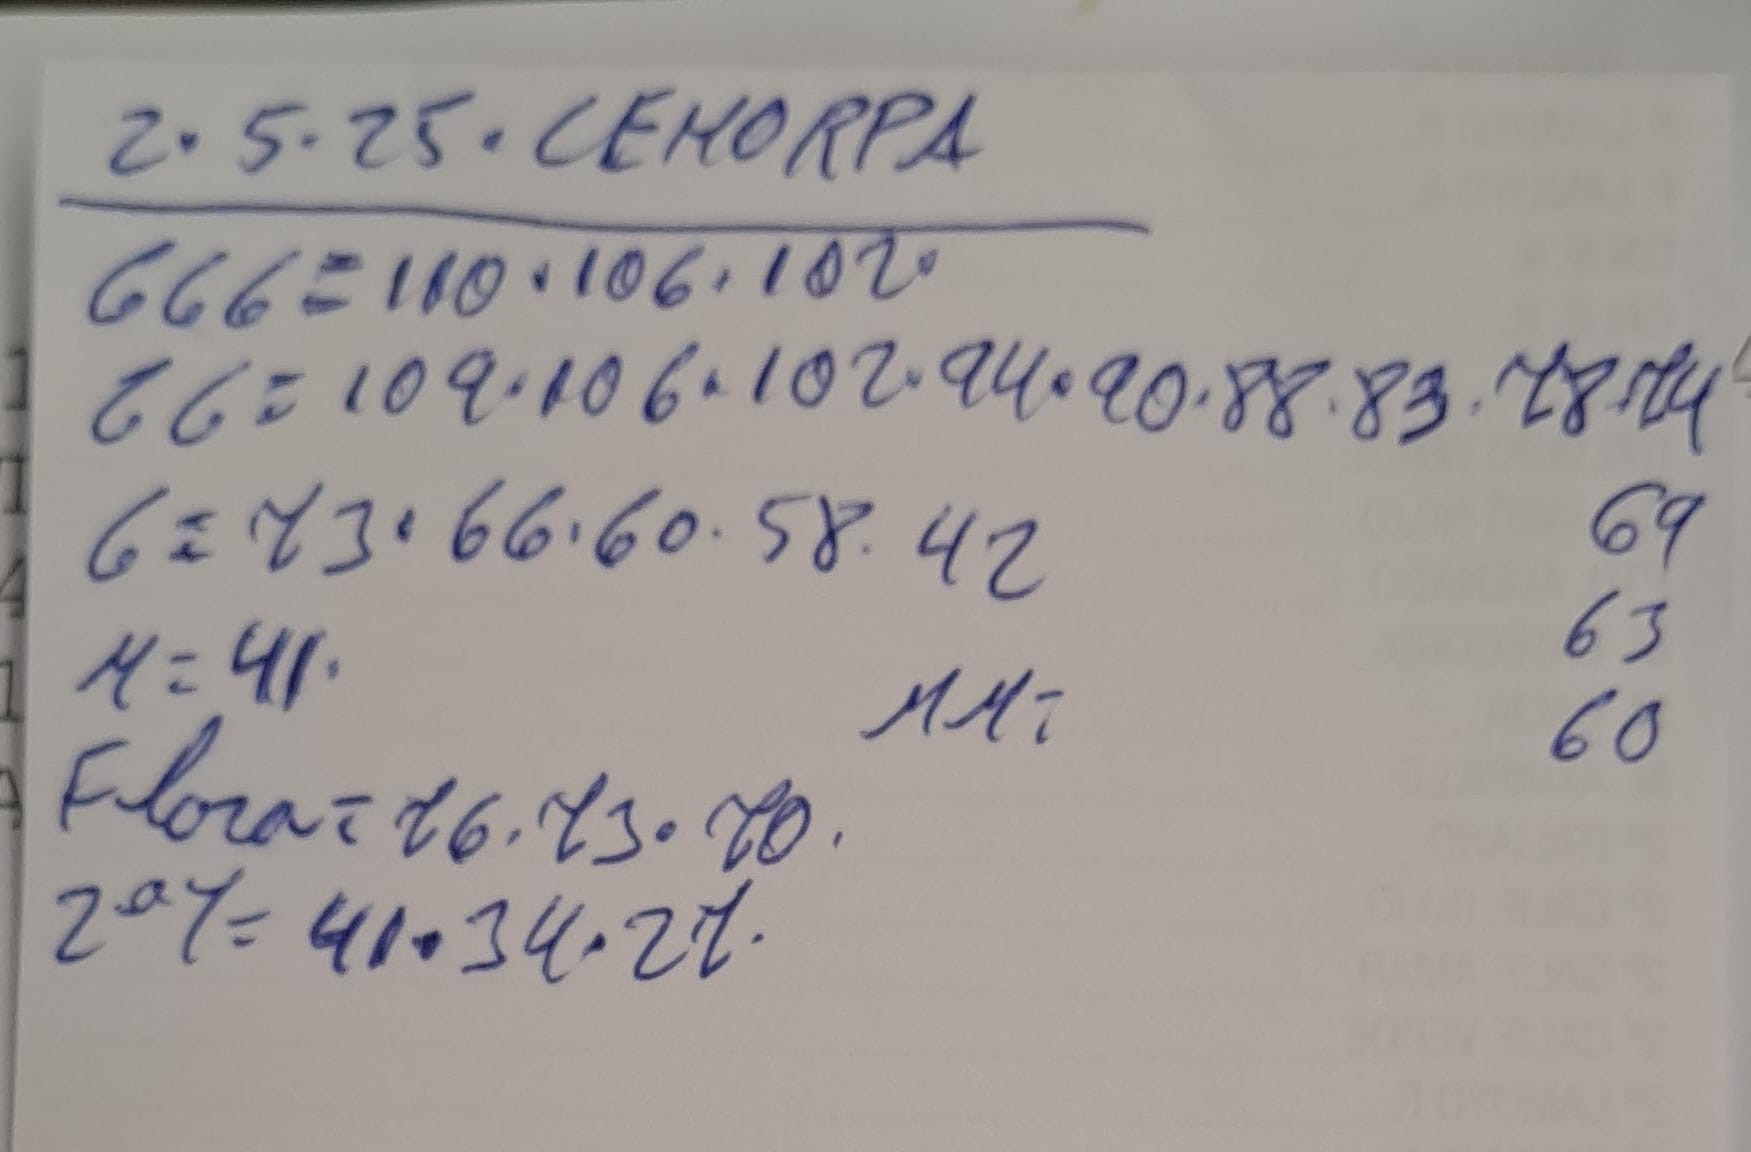 2. 5. 25. CEMORPA
GGG = 110. 106. 102.
GG = 109. 106. 102. 94. 90. 88. 83. 78. 74
69
63
60
G = 73. 66. 60. 58. 42
M = 41.
MM =
Flora = 76. 73. 70.
2ªY = 41. 34. 27.